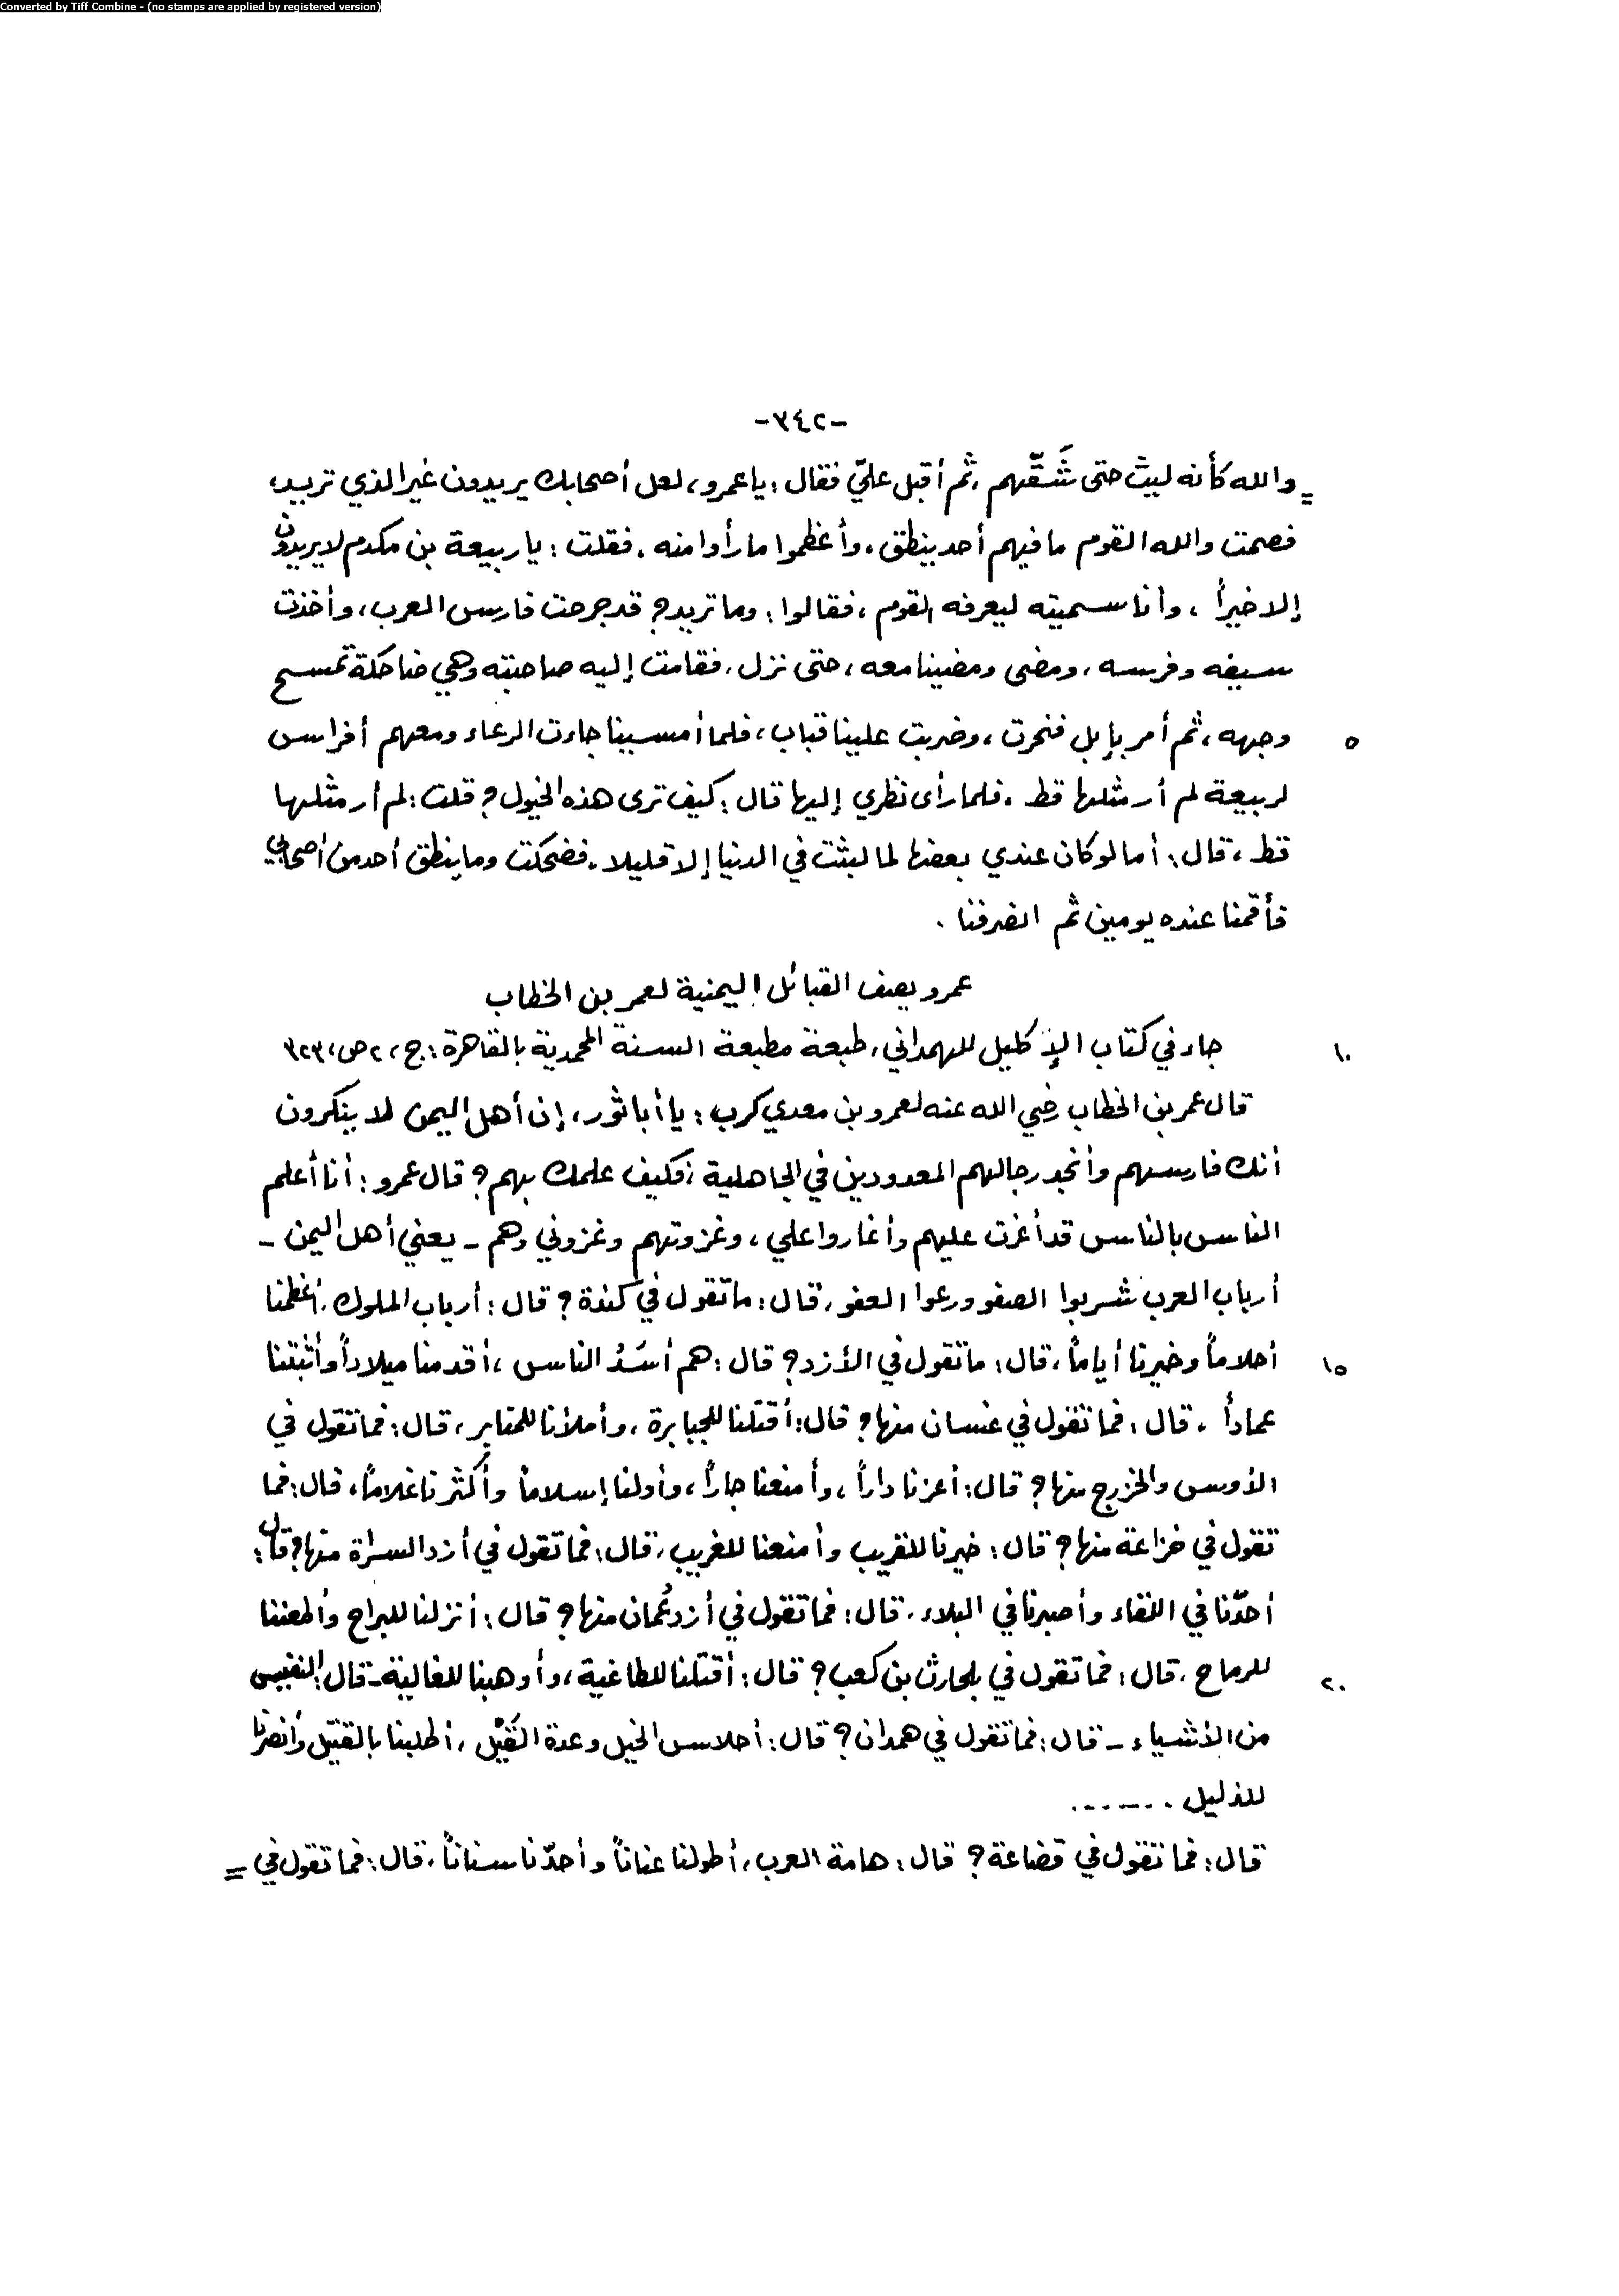 Converted by Tiff Combine - (no stamps are applied by registered version)
-٣٤٢-
= والله كأنه ليث حتى شَقَّهم، ثم أقبل عليّ فقال: يا عمرو، لعل أصحابك يريدون غير الذي تريد،
فصمت والله القوم ما فيهم أحد ينطق، وأعظموا ما رأوا منه. فقلت: يا ربيعة بن مكدم لا يريدون
إلا خيراً، وأنا سميته ليعرفه القوم، فقالوا: وما تريد؟ قد جرحت فارس العرب، وأخذت
سيفه وفرسه، ومضى ومضينا معه، حتى نزل، فقامت إليه صاحبته وهي ضاحكة تمسح
٥ وجهه، ثم أمر بإبل فنحرت، وضربت علينا قباب، فلما أمسينا جاءت الرعاء ومعهم أفراس
لربيعة لم أر مثلها قط. فلما رأى نظري إليها قال: كيف ترى هذه الخيول؟ قلت: لم أر مثلها
قط، قال: أما لو كان عندي بعضها لما لبثت في الدنيا إلا قليلا. فضحكت وما ينطق أحد من أصحابي
فأقمنا عنده يومين ثم انصرفنا.
عمرو يصف القبائل اليمنية لعمر بن الخطاب
١٠ جاء في كتاب الإكليل للهمداني، طبعة مطبعة السنة المحمدية بالقاهرة: ج، ٢ ص، ٣٢٣
قال عمر بن الخطاب رضي الله عنه لعمرو بن معدي كرب: يا أبا ثور، إن أهل اليمن لا ينكرون
أنك فارسهم وأنجد رجالهم المعدودين في الجاهلية، فكيف علمك بهم؟ قال عمرو: أنا أعلم
الناس بالناس قد أغرت عليهم وأغاروا علي، وغزوتهم وغزوني وهم - يعني أهل اليمن -
أرباب العرب شربوا الصفو ورعوا العفو، قال: ما تقول في كندة؟ قال: أرباب الملوك، أعظمنا
١٥ أحلاماً وخيرنا أياماً، قال: ما تقول في الأزد؟ قال: هم أسَدُ الناس، أقدمنا ميلاداً وأثبتنا
عماداً. قال: فما تقول في غسان منها؟ قال: أقتلنا للجبابرة، وأملأنا للمقابر، قال: فما تقول في
الأوس والخزرج منها؟ قال: أعزنا داراً، وأمنعنا جاراً، وأولنا إسلاماً وأكثرنا غلاماً، قال: فما
تقول في خزاعة منها؟ قال: خيرنا للقريب وأمنعنا للغريب، قال: فما تقول في أزد السراة منها؟ قال:
أحدّنا في اللقاء وأصبرنا في البلاء، قال: فما تقول في أزد عُمان منها؟ قال: أنزلنا للبراح وأطعننا
٢٠ للرماح، قال: فما تقول في بلحارث بن كعب؟ قال: أقتلنا للطاغية، وأوهبنا للغالية - قال: النفيس
من الأشياء - قال: فما تقول في همدان؟ قال: أحلاس الخيل وعدة القَيْل، أطلبنا بالقتيل وأنصرنا
للذليل .......
قال: فما تقول في قضاعة؟ قال: هامة العرب، أطولنا عناناً وأحدّنا سناناً، قال: فما تقول في =